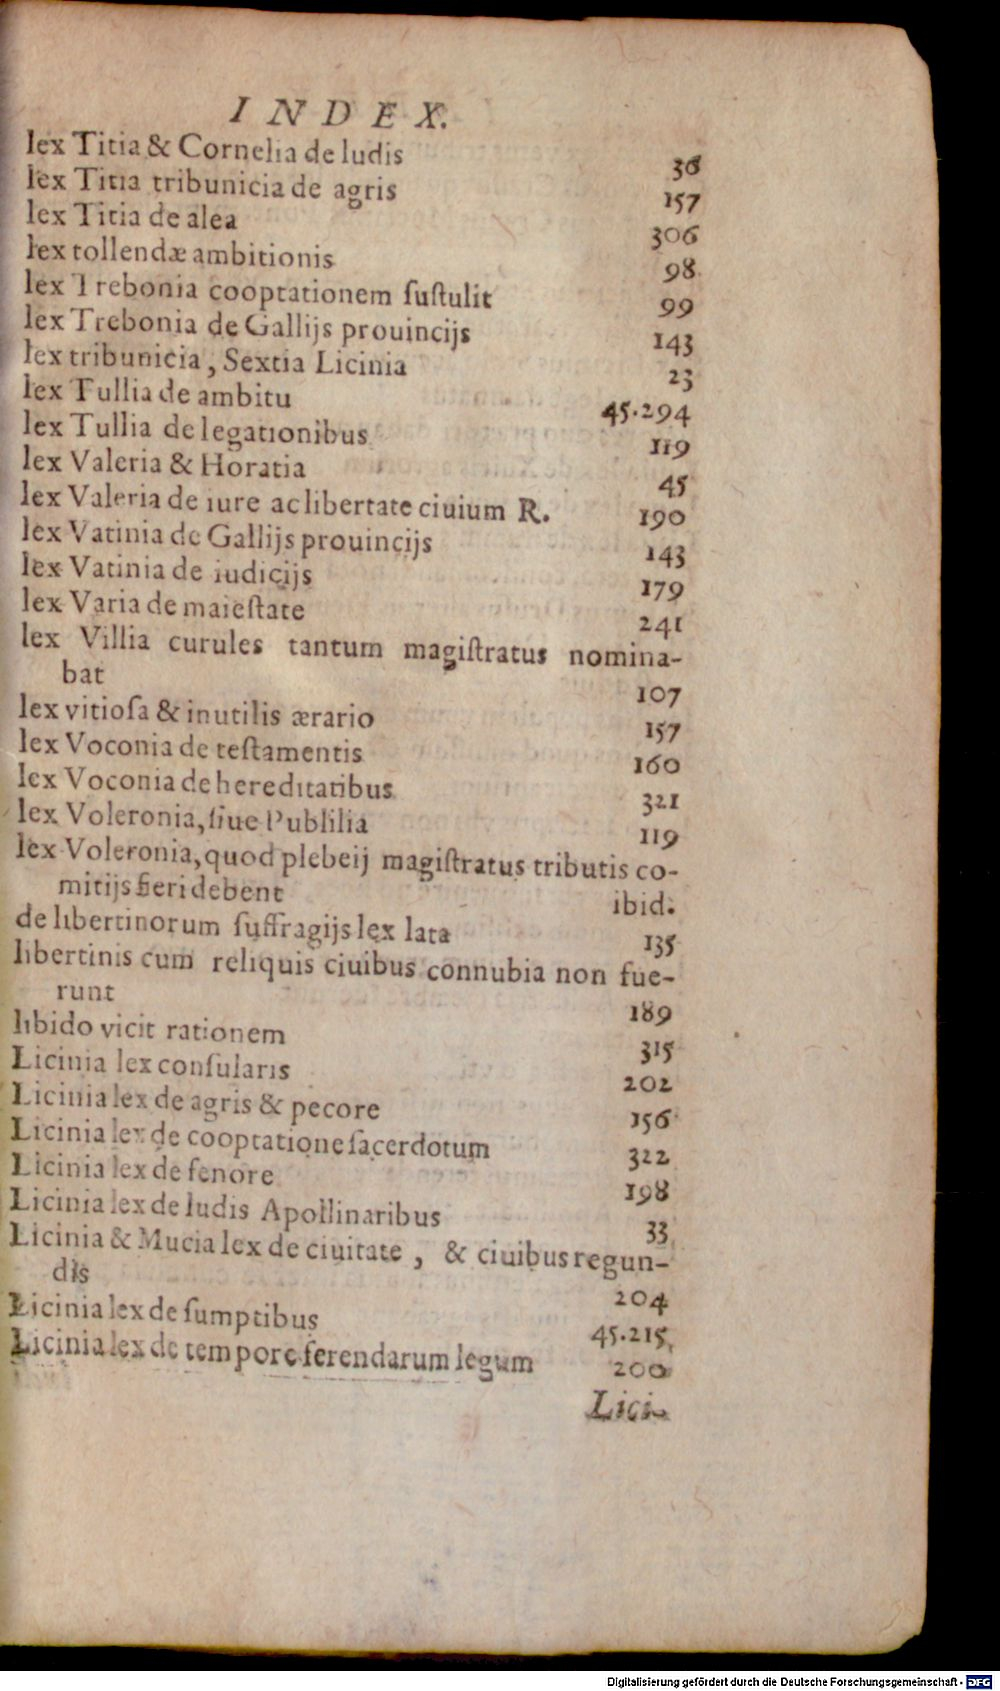 INDEX.
lex Titia & Cornelia de ludis 36
lex Titia tribunicia de agris 157
lex Titia de alea 306
lex tollendæ ambitionis 98
lex Trebonia cooptationem ſuſtulit 99
lex Trebonia de Gallijs prouincijs 143
lex tribunicia, Sextia Licinia 23
lex Tullia de ambitu 45.294
lex Tullia de legationibus 119
lex Valeria & Horatia 45
lex Valeria de iure ac libertate ciuium R. 190
lex Vatinia de Gallijs prouincijs 143
lex Vatinia de iudicijs 179
lex Varia de maieſtate 241
lex Villia curules tantum magiſtratus nomina-
bat 107
lex vitioſa & inutilis ærario 157
lex Voconia de teſtamentis 160
lex Voconia de hereditatibus 321
lex Voleronia, ſiue Publilia 119
lex Voleronia, quod plebeij magiſtratus tributis co-
mitijs fieri debent ibid.
de libertinorum ſuffragijs lex lata 135
libertinis cum reliquis ciuibus connubia non fue-
runt 189
libido vicit rationem 315
Licinia lex conſularis 202
Licinia lex de agris & pecore 156
Licinia lex de cooptatione ſacerdotum 322
Licinia lex de fenore 198
Licinia lex de ludis Apollinaribus 33
Licinia & Mucia lex de ciuitate, & ciuibus regun-
dis 204
Licinia lex de ſumptibus 45.215
Licinia lex de tempore ferendarum legum 200
Lici-
Digitalisierung gefördert durch die Deutsche Forschungsgemeinschaft - DFG